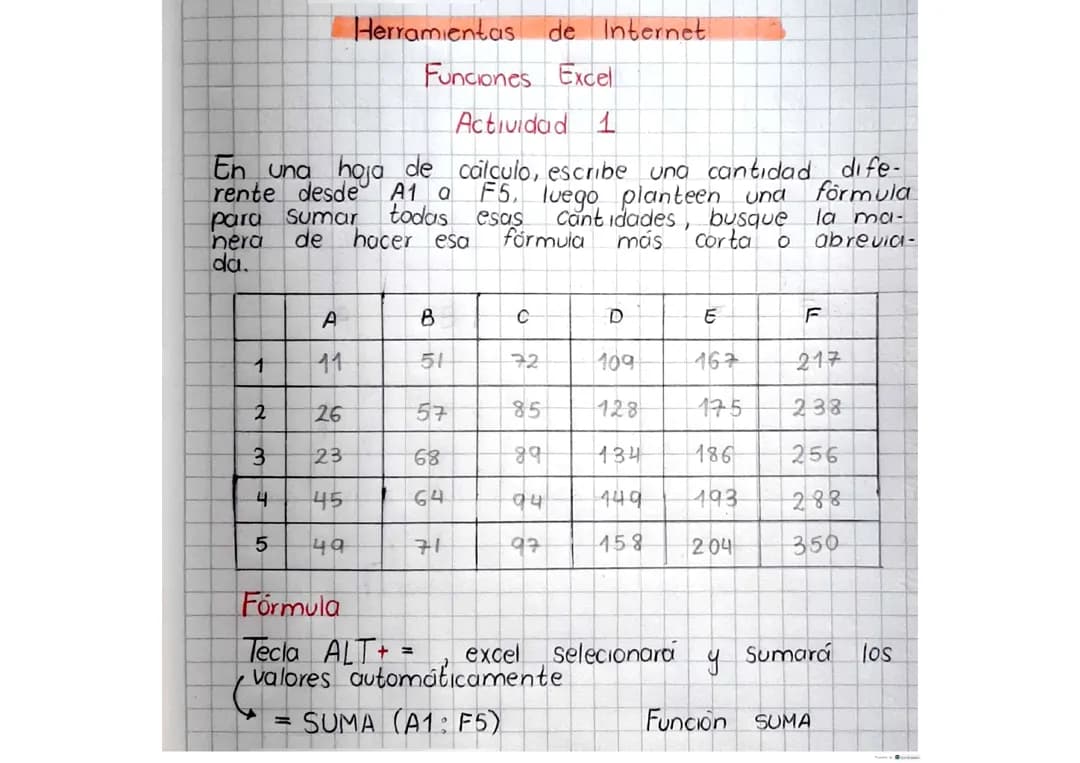 Herramientas de Internet
Funciones Excel
Actividad 1
En una hoja de cálculo, escribe una cantidad dife-
rente desde A1 a F5, luego planteen una fórmula
para sumar todas esas cantidades, busque la ma-
nera de hacer esa fórmula más corta o abrevia-
da.
A B C D E F
1 11 51 72 109 167 217
2 26 57 85 128 175 238
3 23 68 89 134 186 256
4 45 64 94 149 193 288
5 49 71 97 158 204 350
Fórmula
Tecla ALT+ = , excel selecionará y sumará los
valores automáticamente
= SUMA (A1: F5) Función SUMA